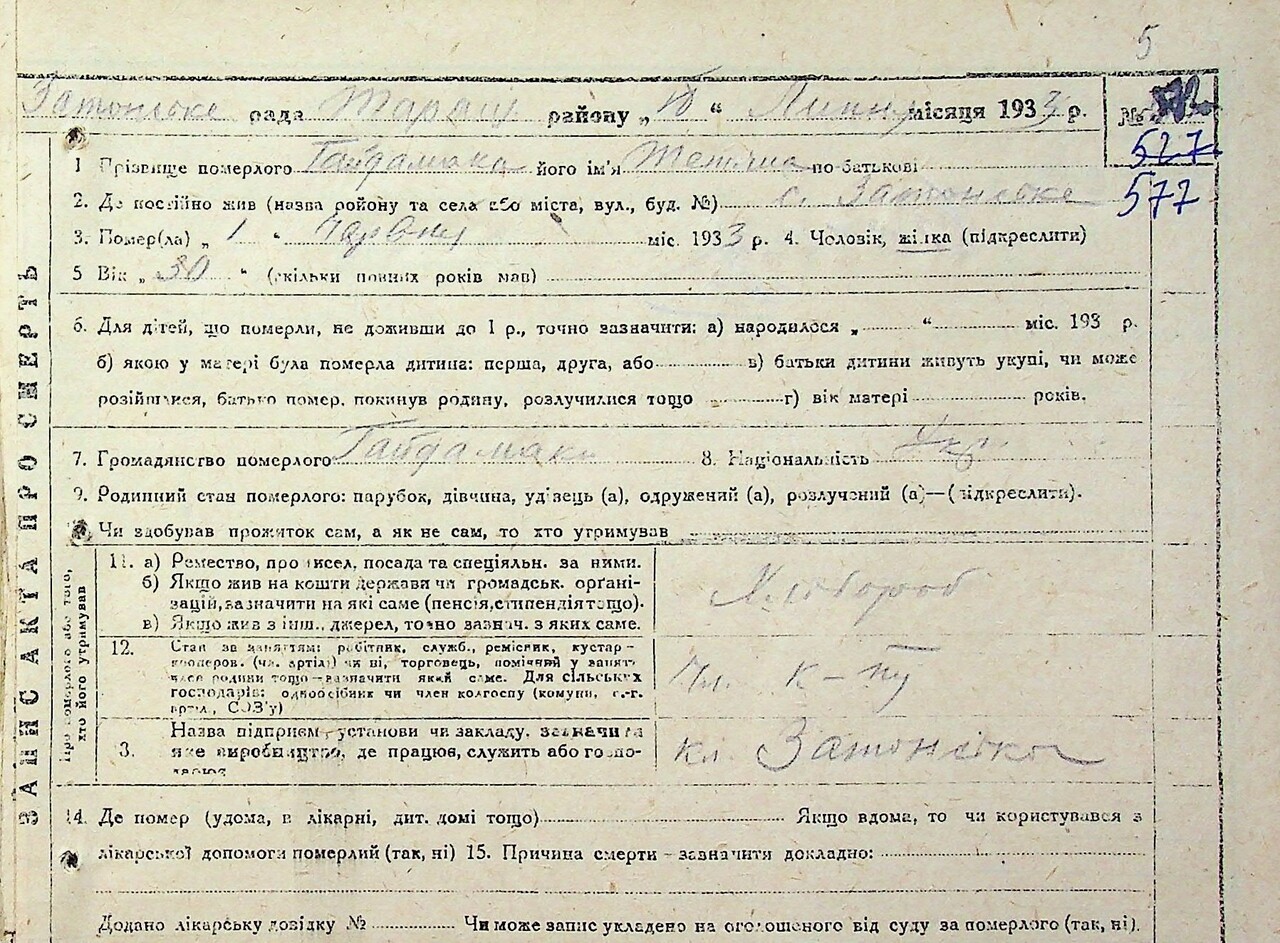 5
Затонське рада Таращ. району „ 10 “ Липня місяця 1933 р. №
527
1 Прізвище померлого Гайдамака його ім'я Тетяна по-батькові
577
2. Де постійно жив (назва району та села або міста, вул., буд. №) с. Затонське
3. Помер(ла) „ 1 “ Червня міс. 1933 р. 4. Чоловік, жінка (підкреслити)
5 Вік „ 30 “ (скільки повних років мав)
6. Для дітей, що померли, не доживши до 1 р., точно зазначити: а) народилося „ “ міс. 193 р.
б) якою у матері була померла дитина: перша, друга, або в) батьки дитини живуть укупі, чи може
розійшлися, батько помер, покинув родину, розлучилися тощо г) вік матері років.
7. Громадянство померлого Гайдамака 8. Національність Укр.
9. Родинний стан померлого: парубок, дівчина, удівець (а), одружений (а), розлучений (а)—(підкреслити).
Чи здобував прожиток сам, а як не сам, то хто утримував
ЗАПИС АКТА ПРО СМЕРТЬ
Про померлого або того,
хто його утримував
11. а) Ремество, промисел, посада та спеціяльн. за ними.
б) Якщо жив на кошти держави чи громадськ. орґані-
зацій, зазначити на які саме (пенсія, стипендія тощо).
в) Якщо жив з інш., джерел, точно зазнач. з яких саме.
Хлібороб
12. Стан за заняттям: робітник, служб., ремісник, кустар-
кооперов. (чл. артілі) чи ні, торговець, помічний у занят-
часе родини тощо—зазначити який саме. Для сільських
господарів: одноосібник чи член колгоспу (комуни, с.-г.
артіл., СОЗ'у)
Чл. к-пу
3. Назва підприєм., установи чи закладу, зазначити
яке виробництво, де працює, служить або госпо-
дарює
кл. Затонська
14. Де помер (удома, в лікарні, дит. домі тощо) Якщо вдома, то чи користувався з
лікарської допомоги померлий (так, ні) 15. Причина смерти – зазначити докладно:
Додано лікарську довідку № Чи може запис укладено на оголошеного від суду за померлого (так, ні).